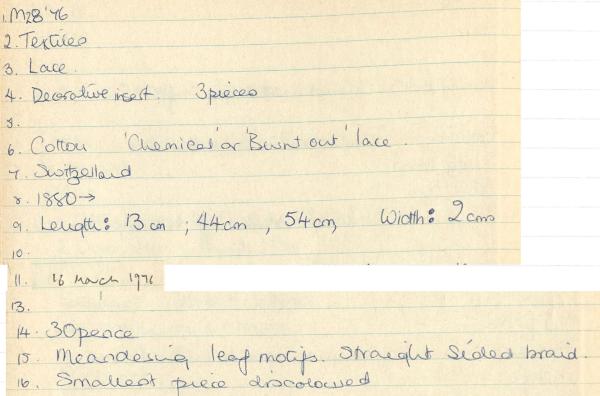 1. M28'76
2. Textiles
3. Lace.
4. Decorative insert. 3 pieces
5.
6. Cotton 'Chemical' or 'Burnt out' lace.
7. Switzerland
8. 1880→
9. Length: 13 cm ; 44cm , 54cm Width: 2 cms
10.
11. 16 March 1976
13.
14. 30pence
15. Meandering leaf motifs. Straight sided braid.
16. Smallest piece discoloured